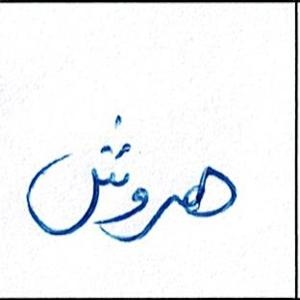 هروش